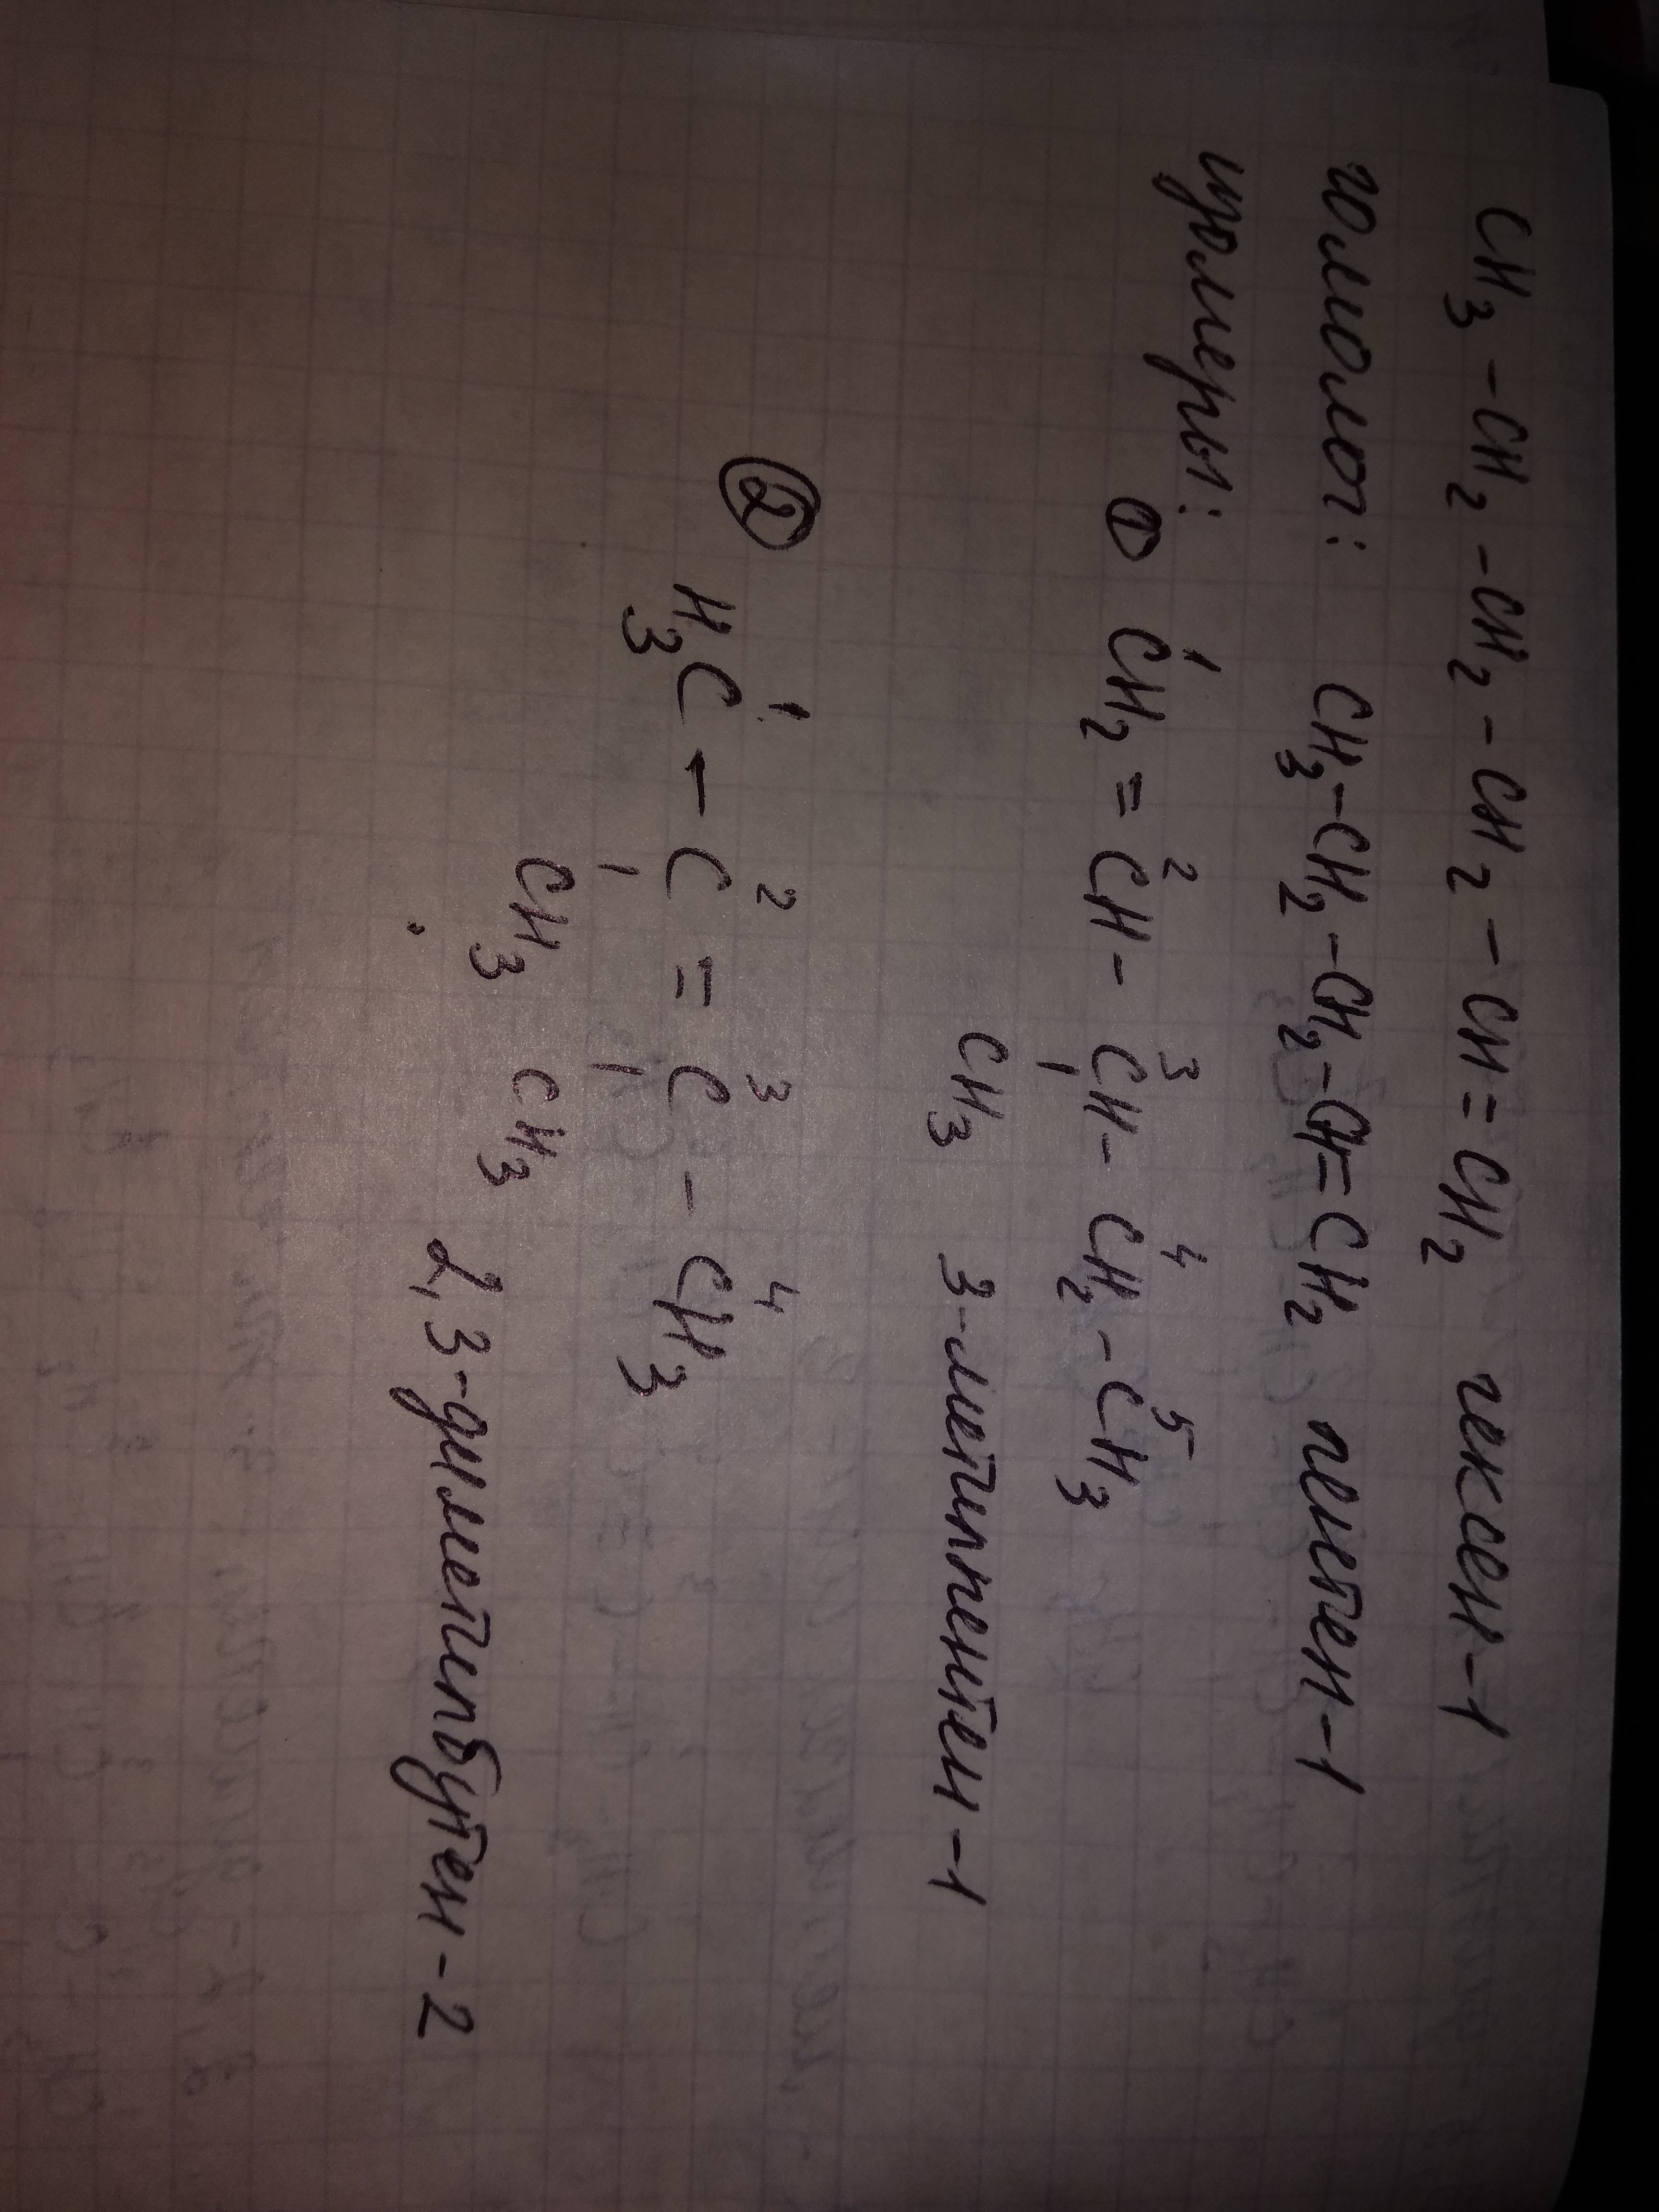 CH3 - CH2 - CH2 - CH2 - CH = CH2 гексен-1
гомолог: CH3-CH2-CH2-CH=CH2 пентен-1
изомеры:
1 2 3 4 5
① CH2 = CH - CH - CH2 - CH3
CH3 3-метилпентен-1
1 2 3 4
② H3C - C = C - CH3
CH3 CH3
2,3-диметилбутен-2